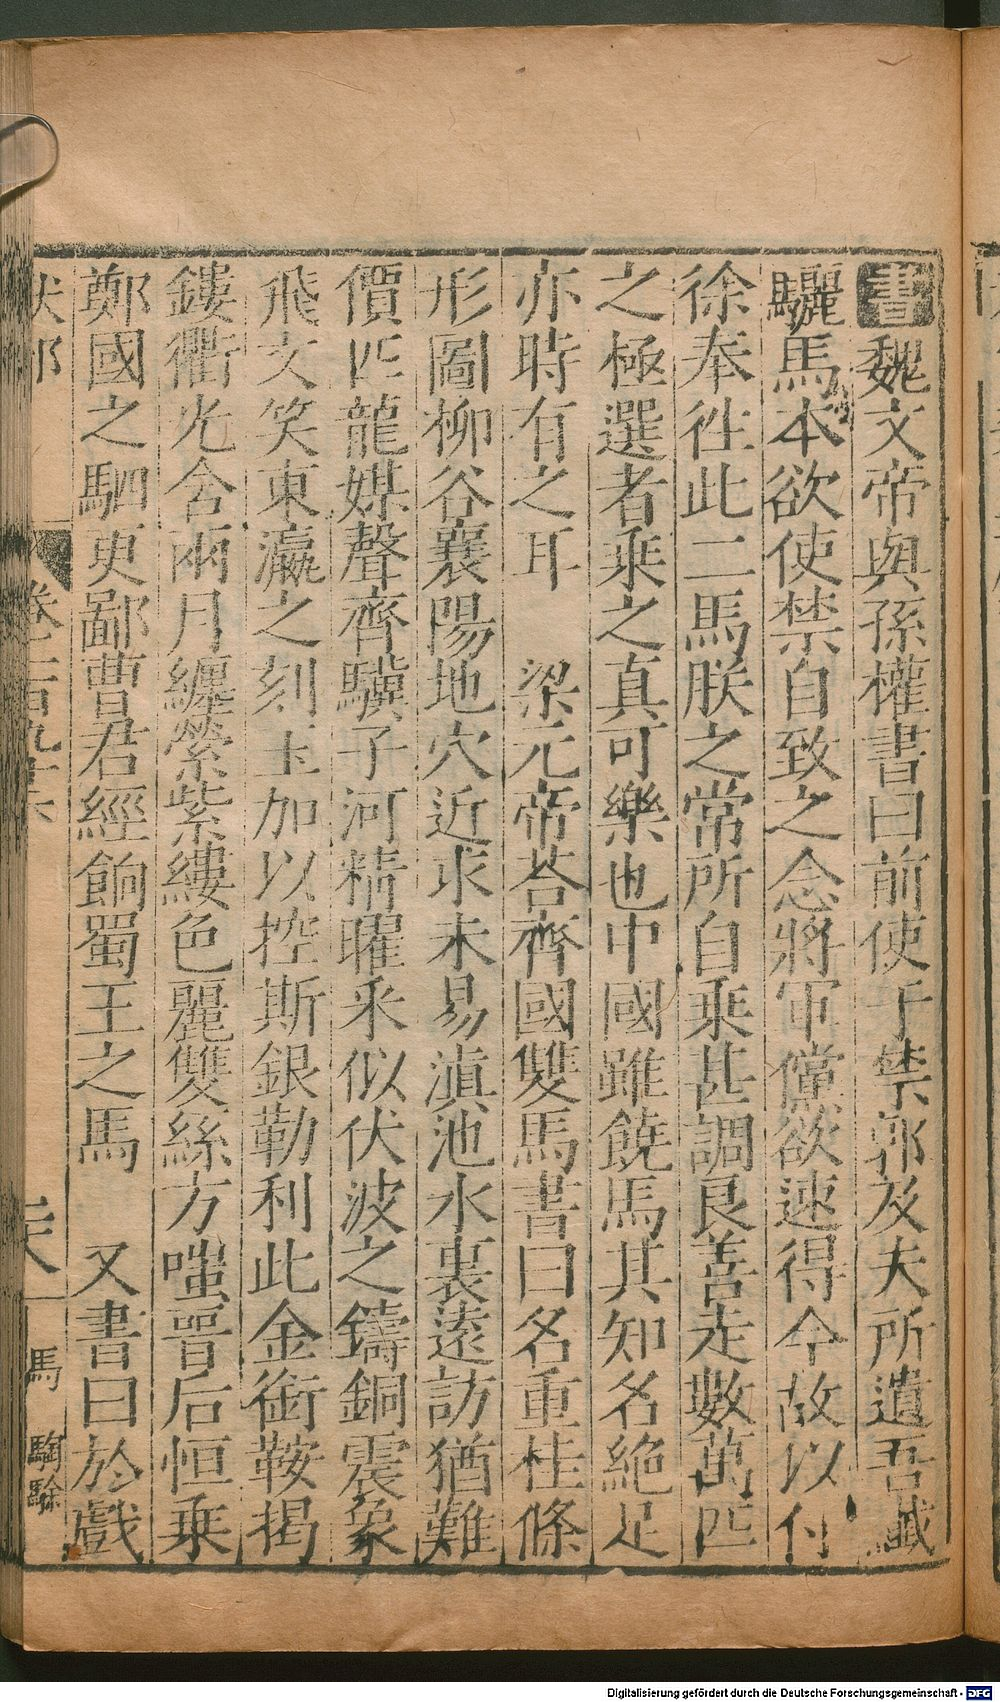 書魏文帝與孫權書曰前使于禁郭及夫所遺吾纖
驪馬本欲使禁自致之念將軍儻欲速得今故以付
徐奉徃此二馬朕之常所自乘甚調良善走數萬匹
之極選者乘之真可樂也中國雖饒馬其知名絶足
亦時有之耳 梁元帝荅齊國雙馬書曰名重桂條
形圖柳谷襄陽地穴近求未易滇池水裏遠訪猶難
價匹龍媒聲齊驥子河精曜采似伏波之鑄銅震象
飛文笑東瀛之刻玉加以控斯銀勒利此金銜鞍揭
鏤衢光含兩月纏縈紫縷色麗雙絲方嗤晉后恒乗
鄭國之駟更鄙曹君經餉蜀王之馬 又書曰於戲
馬 騊駼
Digitalisierung gefördert durch die Deutsche Forschungsgemeinschaft - DFG